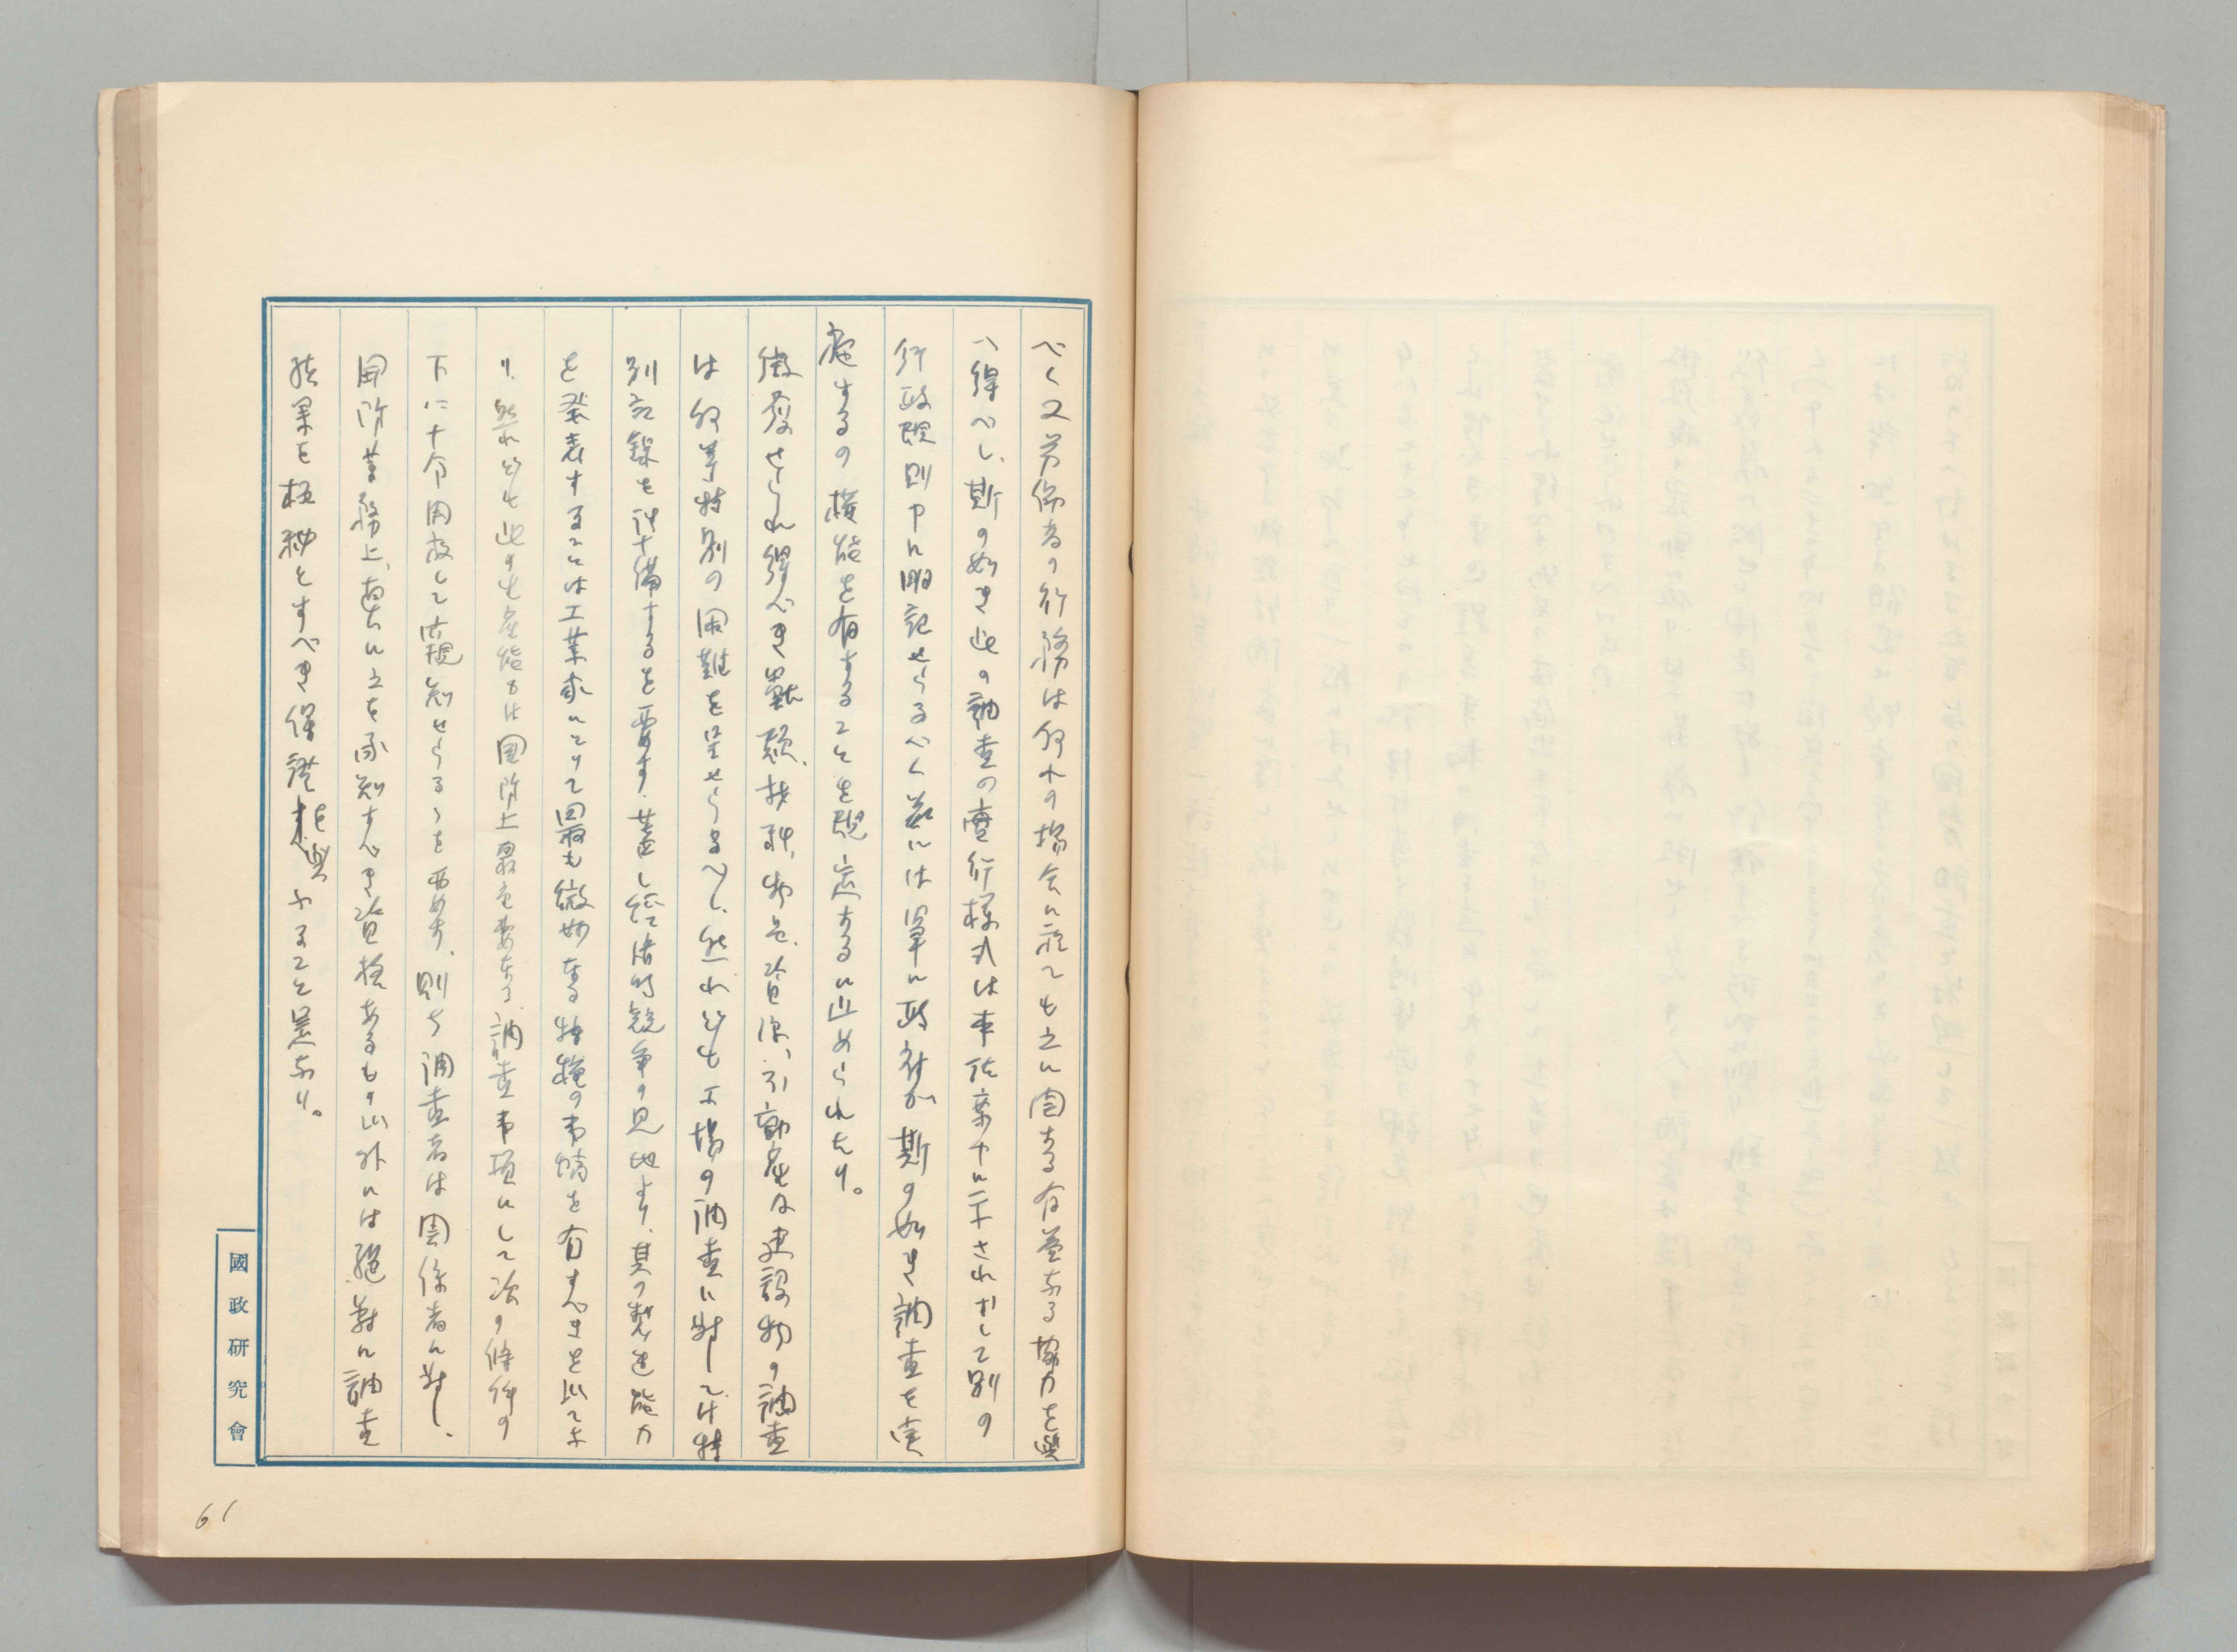 べく又労働者の行務は何れの場合に於ても之に関する有益なる協力を与
へ得べし、斯の如き此の調査の実行様式は本法案中に示されずして別の
行政規則中に明記せらるべく茲には単に政府が斯の如き調査を実
施するの権能を有することを規定するに止められたり。
徴発せられ得べき獣類、材料、物品、資源、不動産及建設物の調査
は何等特別の困難を呈せらるべし、然れども工場の調査に対しては特
別記録を準備するを要す、蓋し経済的競争の見地より、其の製造能力
を発表することは工業家にとりて最も微妙なる特種の事情を有すべきを以てな
り、然れども此の生産能力は国防上最も重要なる調査事項にして次の條件の
下に十分用救して窺知せらるゝを要す、則ち調査者は関係者に対し、
国防業務上、直ちに之を承知すべき資格あるもの以外には絶対に調査
結果を極秘とすべき保証を与ふること是なり。
國政研究會
61